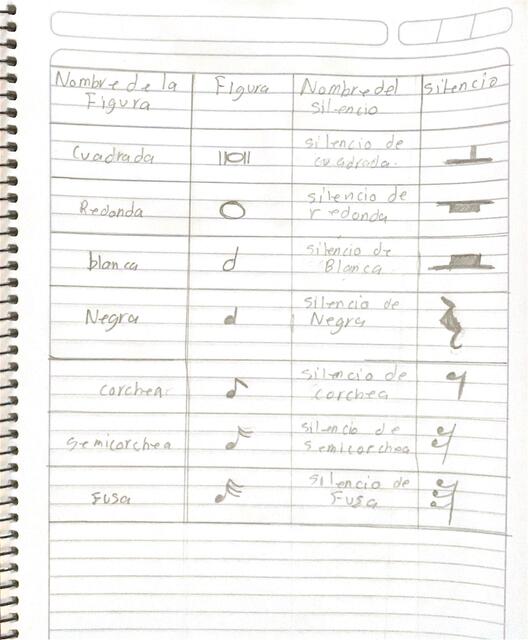 Nombre de la Figura Nombre del silencio
Figura silencio
Cuadrada silencio de
cuadrada.
Redonda silencio de
redonda
blanca silencio de
Blanca
Negra silencio de
Negra
corchea silencio de
corchea
semicorchea silencio de
semicorchea
Fusa silencio de
Fusa